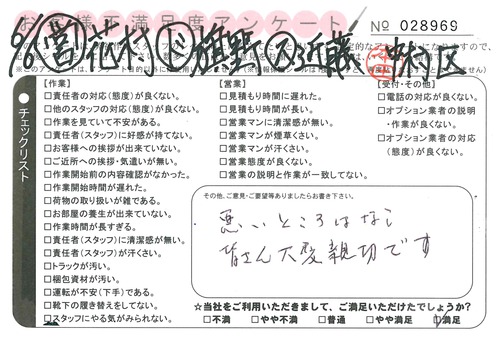 お客様満足度アンケート
No 028969
中村区
チェックリスト
【作業】
□責任者の対応(態度)が良くない。
□他のスタッフの対応(態度)が良くない。
□作業を見ていて不安がある。
□責任者(スタッフ)に好感が持てない。
□お客様への挨拶が出来ていない。
□ご近所への挨拶・気遣いが無い。
□作業開始前の内容確認がなかった。
□作業開始時間が遅れた。
□荷物の取り扱いが雑である。
□お部屋の養生が出来ていない。
□作業時間が長すぎる。
□責任者(スタッフ)に清潔感が無い。
□責任者(スタッフ)が汗くさい。
□トラックが汚い。
□梱包資材が汚い。
□運転が不安(下手)である。
□靴下の履き替えをしてない。
□スタッフにやる気がみられない。
【営業】
□見積もり時間に遅れた。
□見積もり時間が長い。
□営業マンに清潔感が無い。
□営業マンが煙草くさい。
□営業マンが汗くさい。
□営業態度が良くない。
□営業の説明と作業が一致してない。
【受付・その他】
□電話の対応が良くない。
□オプション業者の説明
・作業が良くない。
□オプション業者の対応
(態度)が良くない。
その他、ご意見・ご要望等ありましたらお書き下さい。
悪いところはなし
皆さん大変親切です
☆当社をご利用いただきまして、ご満足いただけたでしょうか?
□不満 □やや不満 □普通 □やや満足 ☑満足